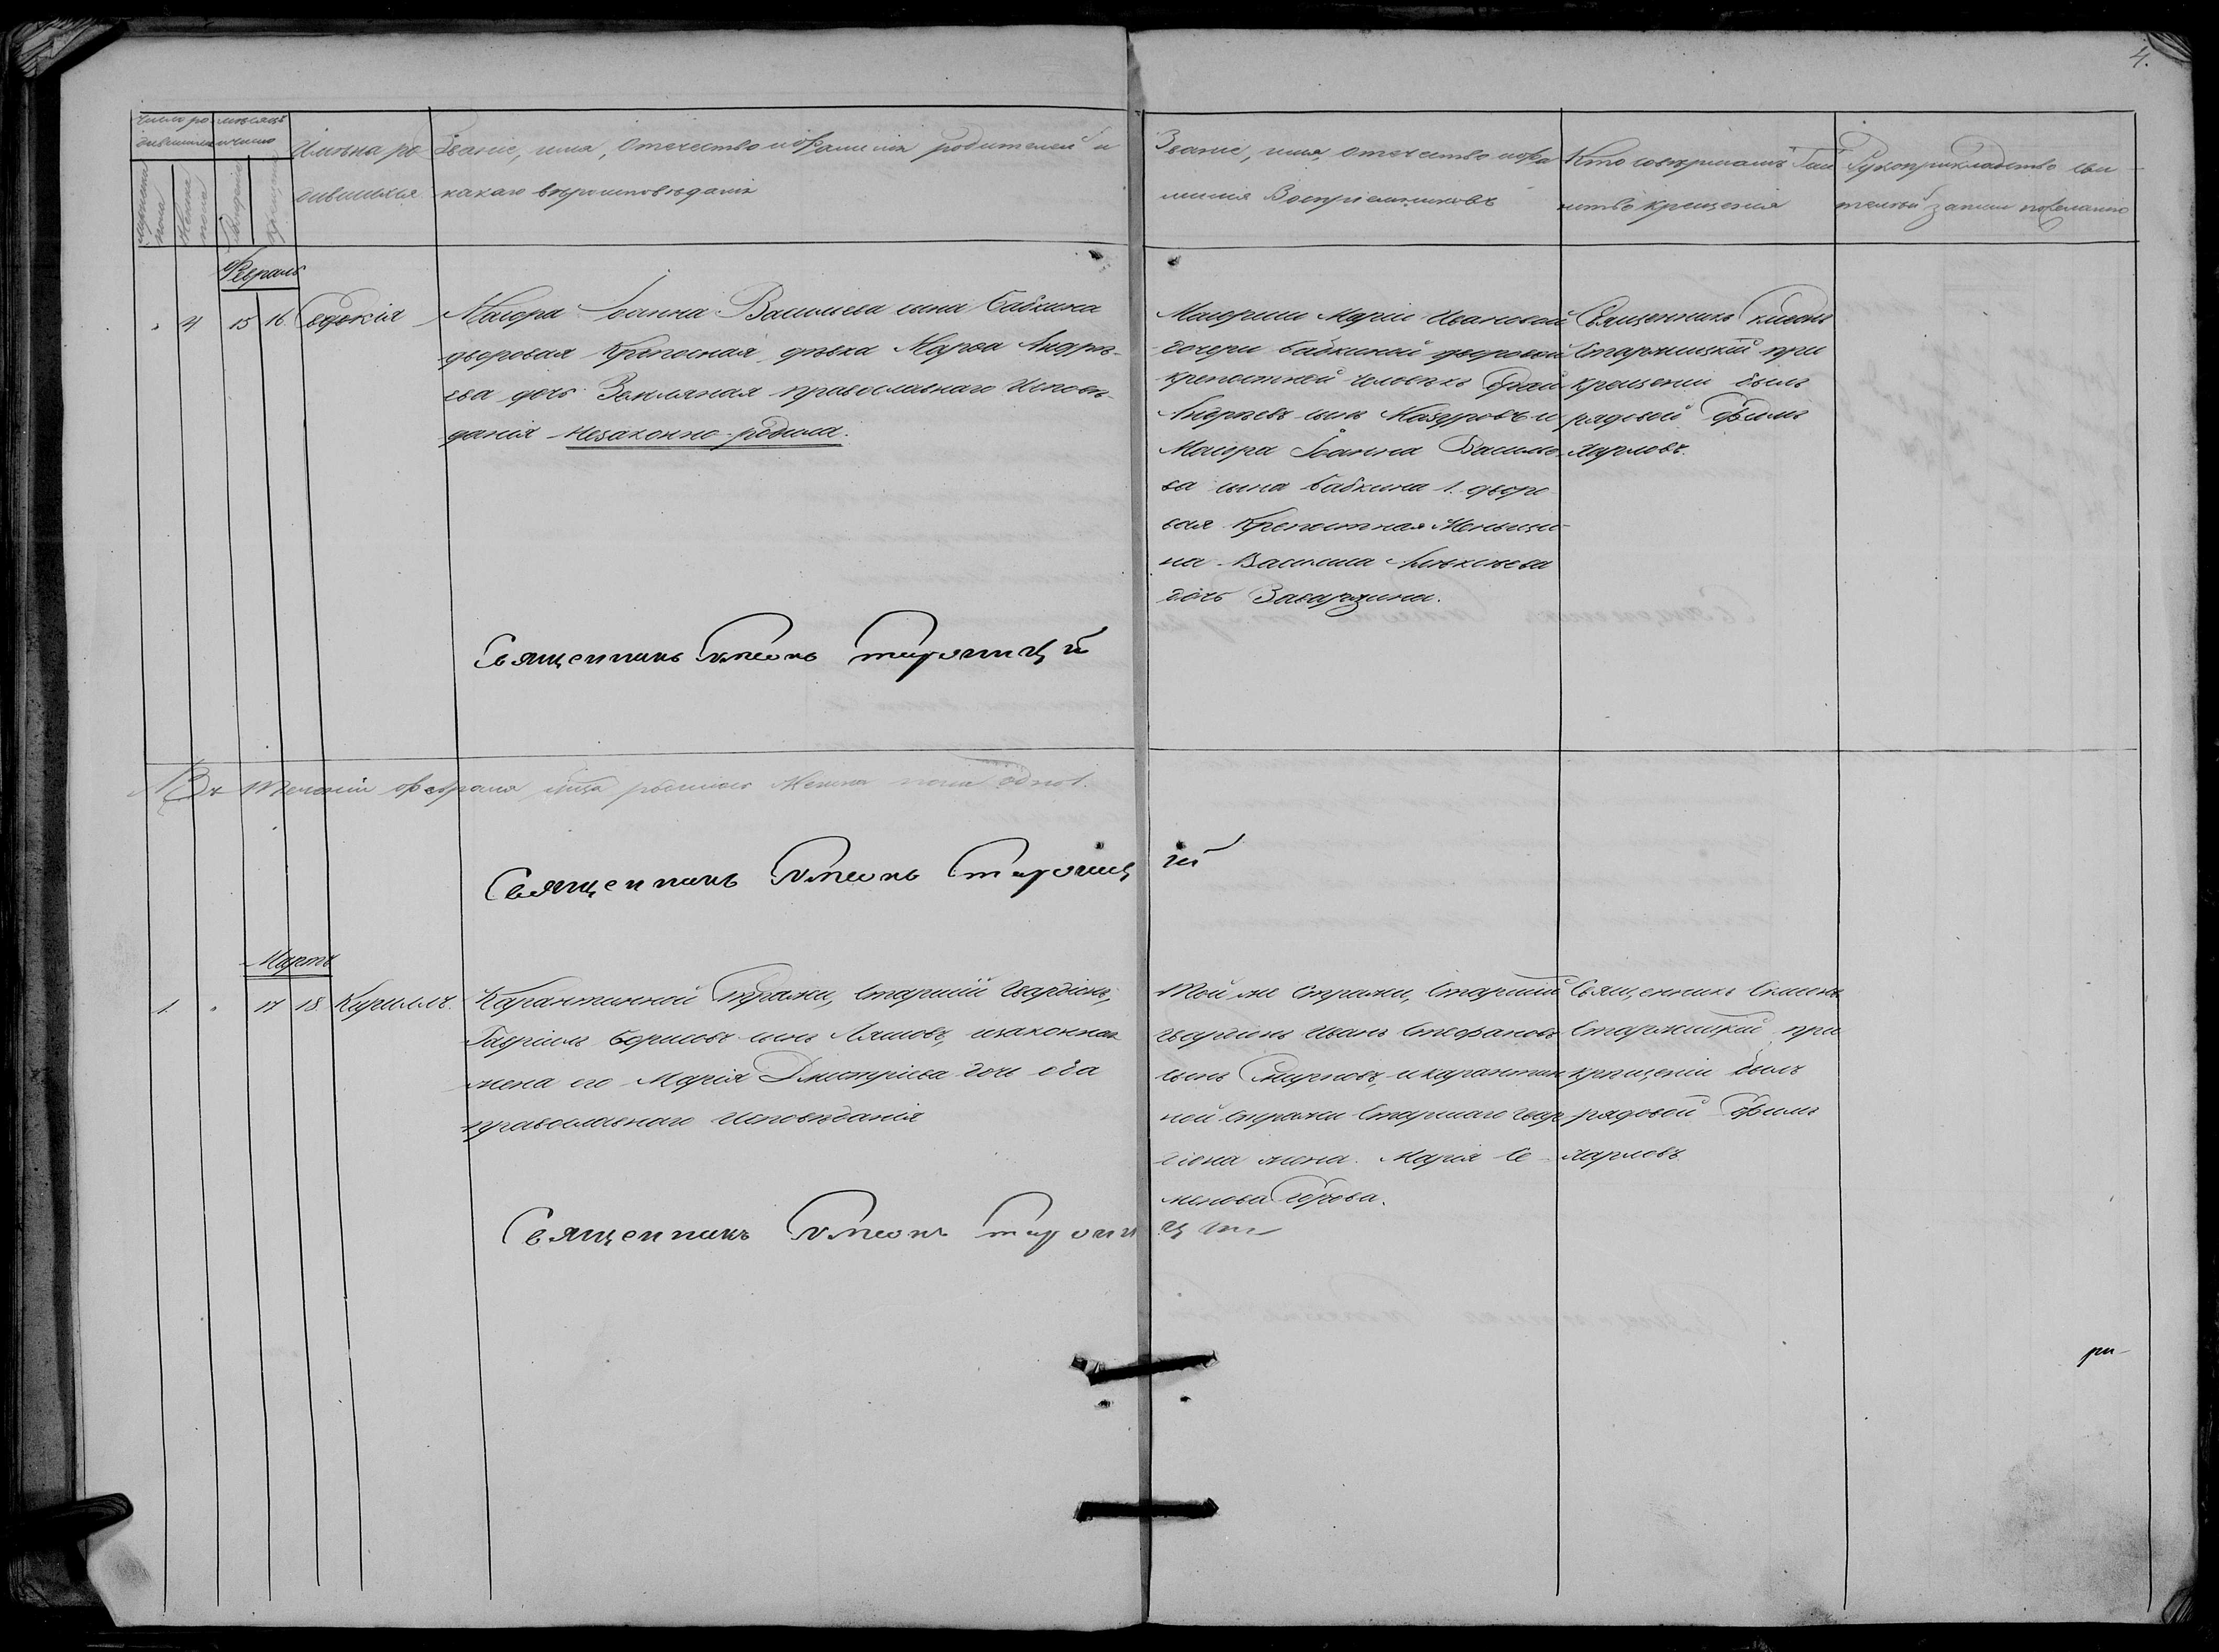 4.
Число родившихся
мѣсяцъ и число
Имена родившихся
Званіе, имя, отечество и фамилія родителей и
какаго вѣроисповѣданія
Званіе, имя, отечество и фамилія Воспріемниковъ
Кто совершалъ Таинство крещенія
Рукоприкладство свидѣтелей записи по желанію
Мужеска пола
Женска пола
Рожденія
Крещенія
Февраль
" 4 15 16 Евдокія
Маіора Іоанна Васильева сына Бабкина
дворовая Крепосная дѣвка Марѳа Андрѣ-
ева дочь Земляная православнаго Исповѣ-
данія Незаконно-родила.
Маіорши Маріи Ивановой
дочери Бабкиной дворовой
крепостной человѣкъ
Андрѣевъ сынъ Мазуровъ и
Маіора Іоанна Василье-
ва сына Бабкина 1. дворо
вая Крепостная Женщи-
на Василиса Алексѣева
дочь
Священникъ Симеонъ
Старжицкій при
крещеніи былъ
рядовой Ефимъ
Карловъ.
Священникъ Симеонъ Старжицкій
Въ теченіи февраля м-ца родилось Женска пола одно 1.
Священникъ Симеонъ Старжицкій
Мартъ
1. " 17 18 Кириллъ.
Карантинной Стражи, Старшій Гвардіонъ,
Гавріилъ Борисовъ сынъ Ляшовъ, изаконная
жена его Марія Дмитріева дочь оба
православнаго Исповѣданія
Той же Стражи, Старшій
гвардіонъ Иванъ Стефановъ
сынъ Смирновъ, и карантин
ной Стражи Старшаго гвар
діона жена. Марія Се-
менова
Священникъ Симеонъ
Старжицкій при
крещеніи былъ
рядовой Ефимъ
Карловъ
Священникъ Симеонъ Старжицкій
ри-